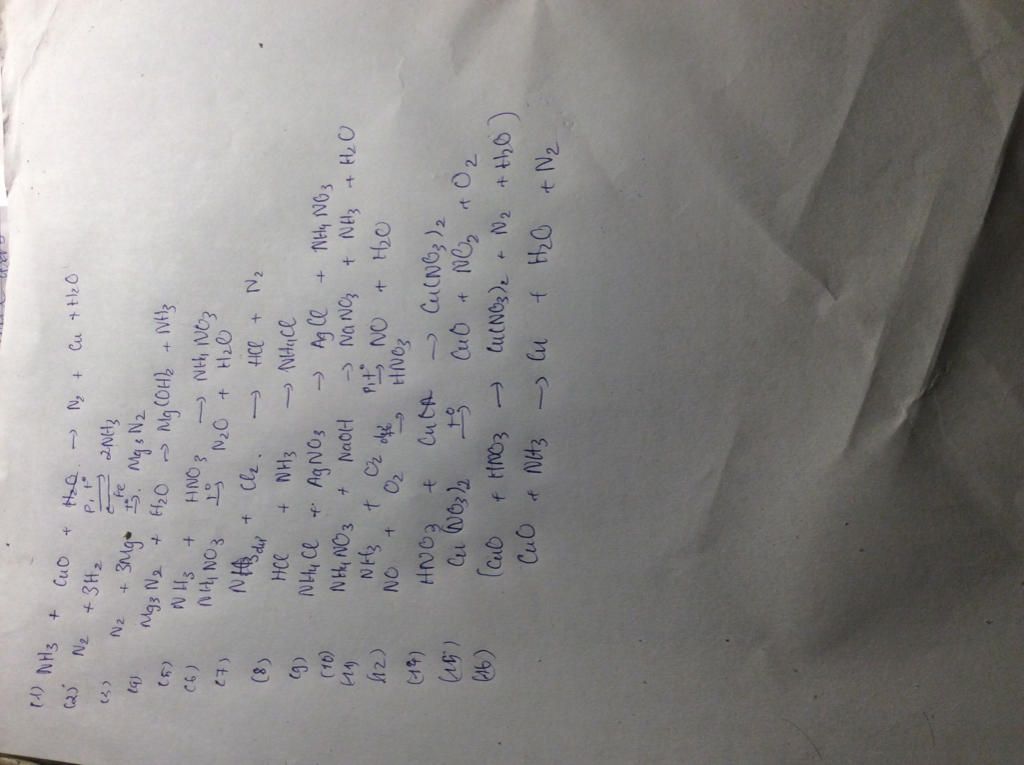 (1) NH3 + CuO + H2O → N2 + Cu + H2O
(2) N2 + 3H2 p,t° ⇌ Fe 2NH3
(3) N2 + 3Mg t° → Mg3N2
(4) Mg3N2 + H2O → Mg(OH)2 + NH3
(5) NH3 + HNO3 → NH4NO3
(6) NH4NO3 t° → N2O + H2O
(7) NH3 + Cl2 → HCl + N2
(8) HCl + NH3 → NH4Cl
(9) NH4Cl + AgNO3 → AgCl + NH4NO3
(10) NH4NO3 + NaOH → NaNO3 + NH3 + H2O
(11) NH3 + O2 p,t° → NO + H2O
(12) NO + O2 → HNO3
(14) HNO3 + → Cu(NO3)2
(15) Cu(NO3)2 t° → CuO + NO2 + O2
(16) (CuO + HNO3 → Cu(NO3)2 + N2 + H2O)
CuO + NH3 → Cu + H2O + N2